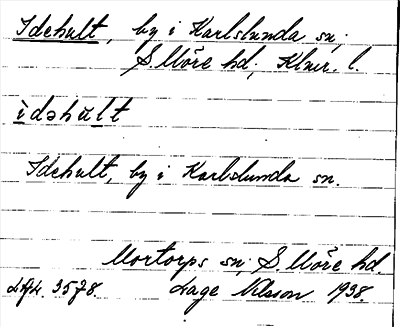 Idehult, by i Karlslunda sn,
S. Möre hd, Klmr. l.
ìdəhu̵lt
Idehult, by i Karlslunda sn.
Mortorps sn, S. Möre hd.
3578. Lage Nilsson 1938.